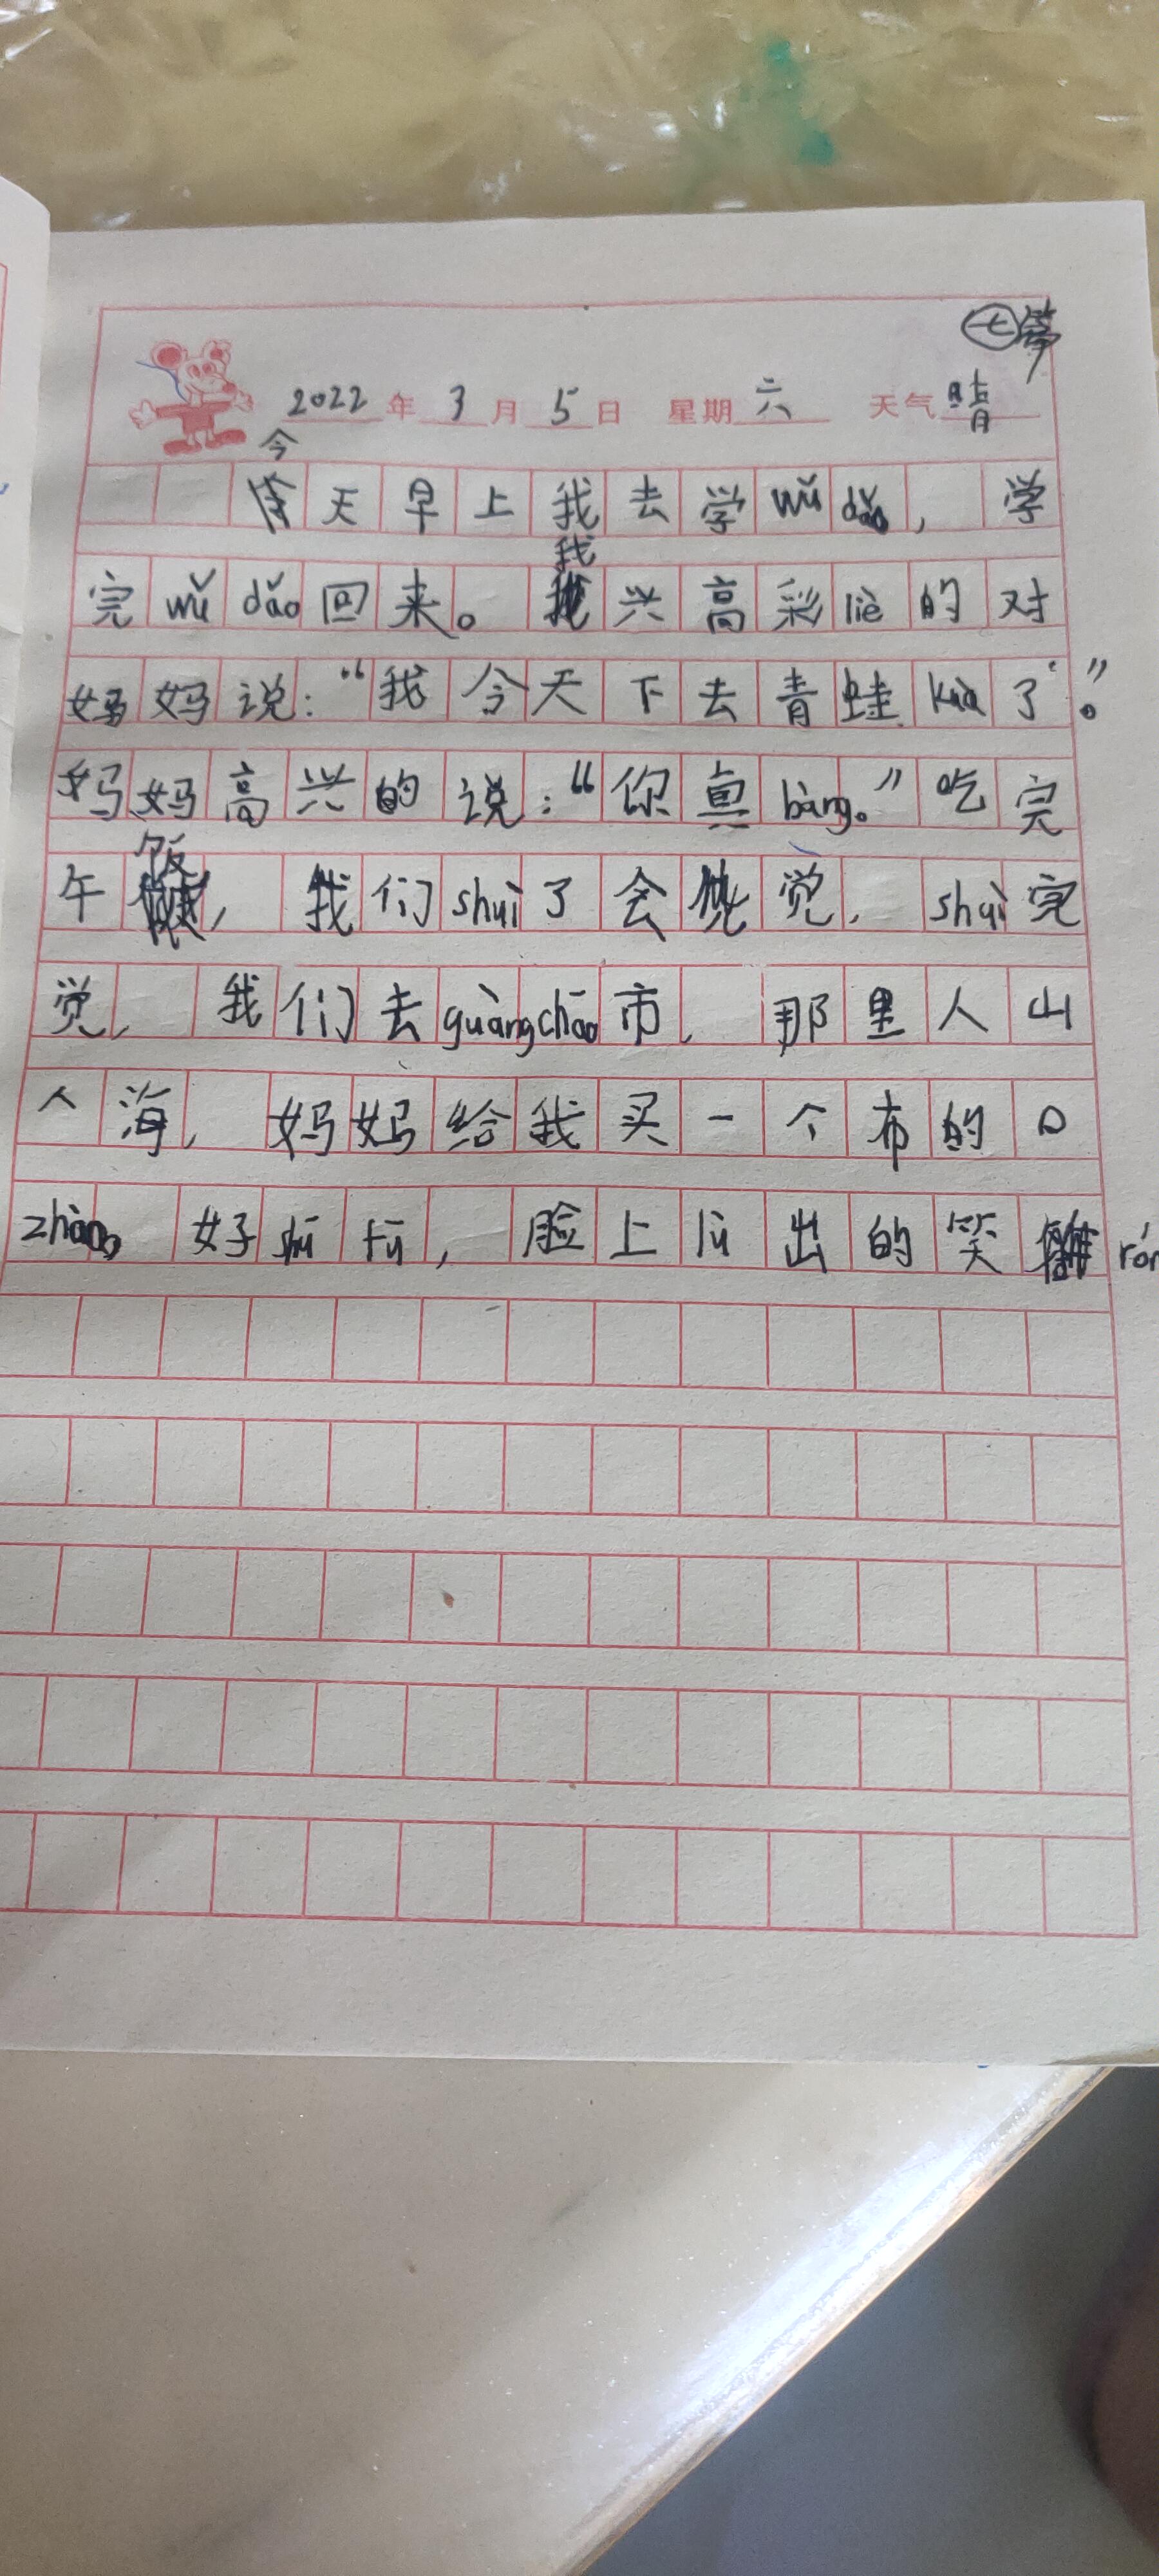 七篇
2022年3月5日 星期六 天气晴
今
天早上我去学wǔ dǎo，学
我
完wǔ dǎo回来。兴高彩liè的对
妈妈说：“我今天下去青蛙kuà了”。
妈妈高兴的说：“你真bàng。”吃完
饭
午，我们shuì了会觉，shuì完
觉，我们去guàngchāo市，那里人山
人海，妈妈给我买一个布的口
zhào，好shū fú，脸上lù出的笑rón